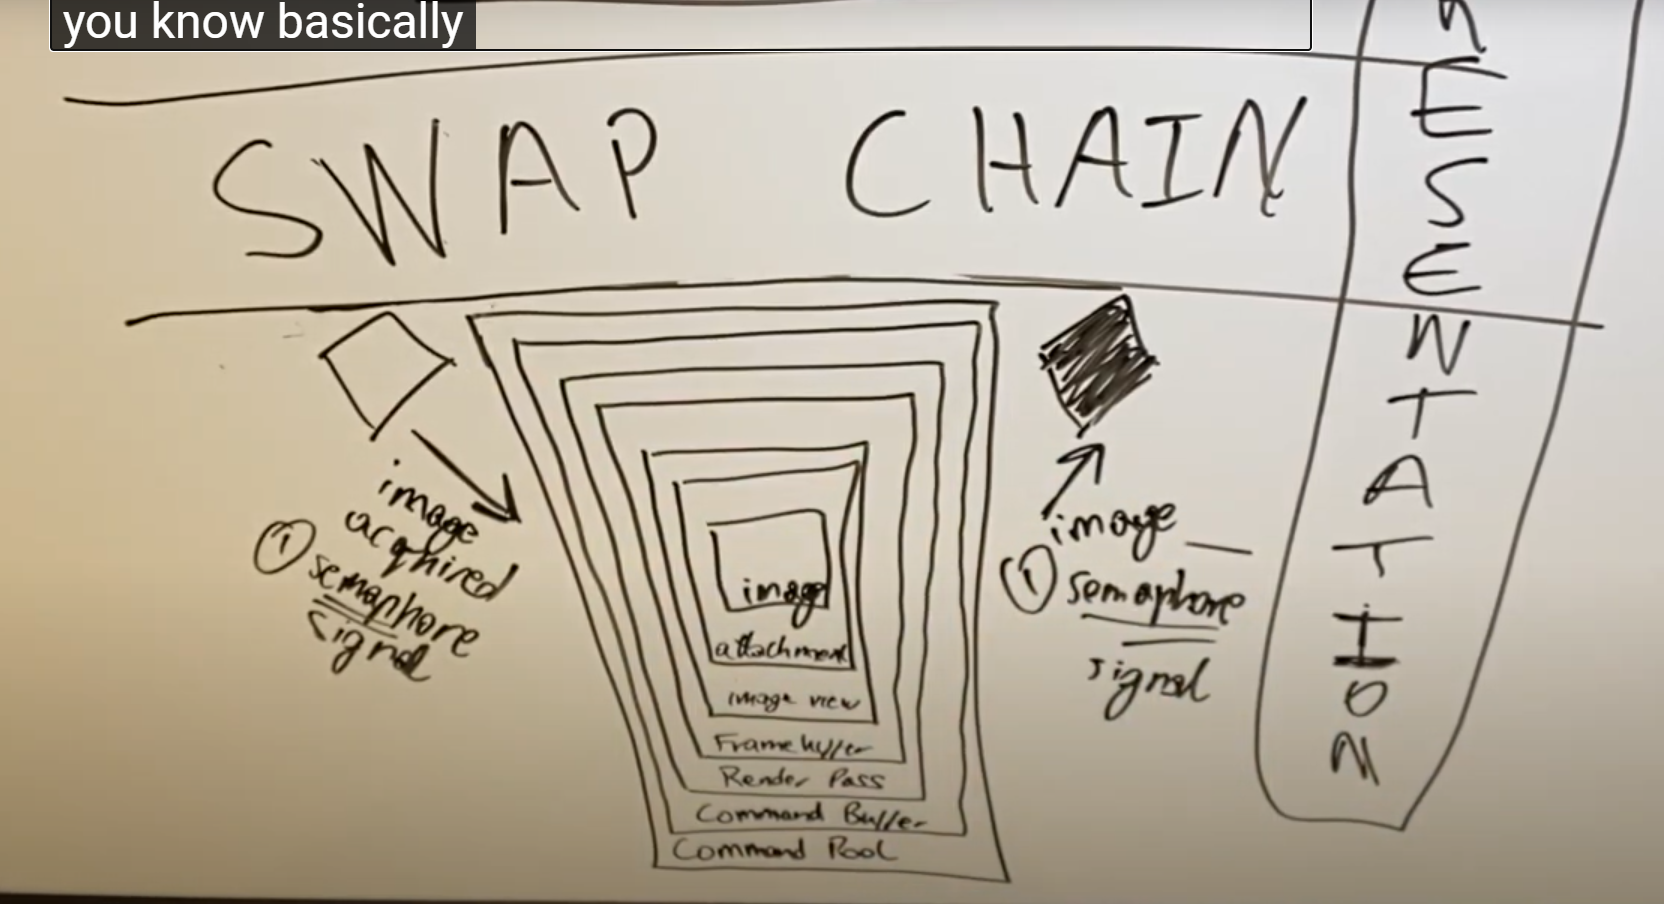 you know basically
SWAP CHAIN
RESENTATION
image
acquired
① semaphore
signal
image
attachment
image view
Framebuffer
Render Pass
Command Buffer
Command Pool
image
① semaphore
signal